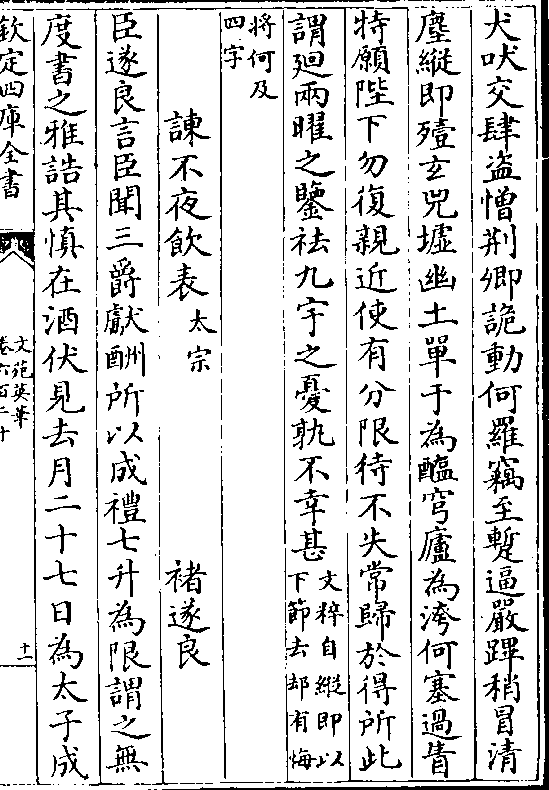 犬吠交肆盗憎荆卿詭動何羅竊至蹔逼嚴蹕稍冒清
塵縱即殪玄兕墟幽土單于為醢穹廬為洿何塞過眚
特願陛下勿復親近使有分限待不失常歸於得所此
謂廻兩曜之鑒祛九宇之憂孰不幸甚文粹自縱即以
下節去却有悔
将何及
四字
諫不夜飲表太宗 褚遂良
臣遂良言臣聞三爵獻酬所以成禮七升為限謂之無
度書之雅誥其慎在酒伏見去月二十七日為太子成
欽定四庫全書
文苑英華
卷六百二十
十一